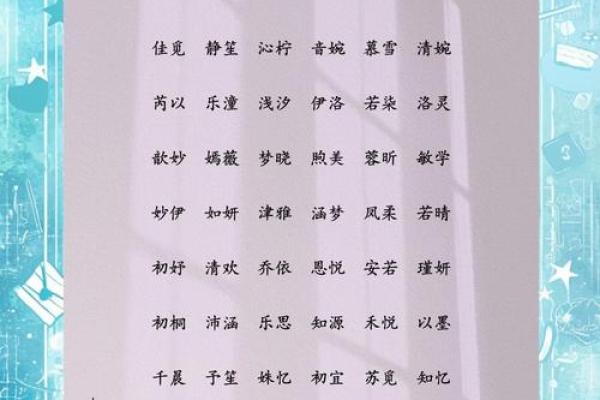 佳觅 静笙 沁柠 音婉 慕雪 清婉
芮以 乐潼 浅汐 伊洛 若柒 洛灵
歆妙 嫣薇 梦晓 煦美 蓉昕 敏学
妙伊 如妍 津雅 涵梦 凤柔 若晴
初妤 清欢 乔依 恩悦 安若 瑾妍
初桐 沛涵 乐思 知源 禾悦 以墨
千晨 予笙 姝忆 初宜 苏觅 知忆